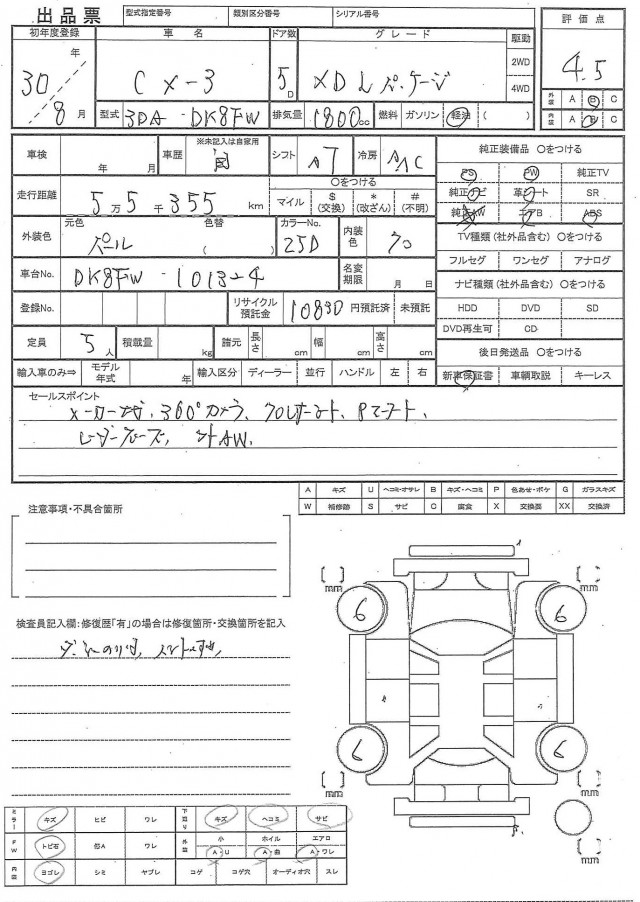 出品票 型式指定番号 類別区分番号 シリアル番号
初年度登録 車名 ドア数 グレード 駆動 評価点
30年 8月 CX-3 5D XDLパッケージ 2WD 4WD 4.5
型式 3DA-DK8FW 排気量 1800cc 燃料 ガソリン 軽油 ( )
外装 A B C
内装 A B C
車検 年 月 車歴 ※未記入は自家用 自 シフト AT 冷房 AAC 純正装備品 〇をつける
PS PW 純正TV
走行距離 5万5千355km 〇をつける マイル $(交換) *(改ざん) #(不明)
純正ナビ 革シート SR
純正AW エアB ABS
外装色 元色 パール 色替 ( ) カラーNo. 25D 内装色 クロ
TV種類(社外品含む) 〇をつける
フルセグ ワンセグ アナログ
車台No. DK8FW-101324 名変期限 月 日
ナビ種類(社外品含む) 〇をつける
登録No. リサイクル預託金 10830 円預託済 未預託
HDD DVD SD
DVD再生可 CD
定員 5人 積載量 kg 諸元 長さ cm 幅 cm 高さ cm
後日発送品 〇をつける
輸入車のみ⇒ モデル年式 年 輸入区分 ディーラー 並行 ハンドル 左 右
新車保証書 車輌取説 キーレス
セールスポイント
メーカーナビ、360°カメラ、クロレザーシート、Pシート、
レーダークルーズ、外AW、
A キズ U ヘコミ・オサレ B キズ・ヘコミ P 色あせ・ボケ G ガラスキズ
W 補修跡 S サビ C 腐食 X 交換要 XX 交換済
注意事項・不具合箇所
mm mm
6 6
検査員記入欄:修復歴「有」の場合は修復箇所・交換箇所を記入
6 6
mm mm
ミラー キズ ヒビ ワレ 下廻り キズ ヘコミ サビ
FW トビ石 郵A ワレ 外装 小 A・U ホイル A・曲 エアロ A・ワレ
mm
内装 ヨゴレ シミ ヤブレ コゲ コゲ穴 オーディオ穴 スレ